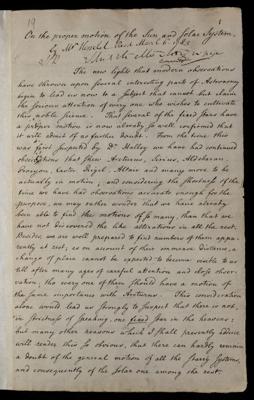 19
1
On the proper motion of the Sun and Solar System,
by Mr Herschel Read March 6. 1783
The new light that modern observations
have thrown upon several interesting parts of Astronomy
begin to lead us now to a subject that cannot but claim
the serious attention of every one who wishes to cultivate
this noble science. That several of the fixed stars have
a proper motion is now already so well confirmed that
it will admit of no further doubt. From the time this
was first suspected by Dr Halley we have had continued
observations that shew Arcturus, Sirius, Aldebaran,
Procyon, Castor, Rigel, Altair and many more to be
actually in motion; and considering the shortness of the
time we have had observations accurate enough for the
purpose, we may rather wonder that we have already
been able to find the motions of so many, than that we
have not discovered the like alterations in all the rest.
Besides we are well prepared to find numbers of them appa-
rently at rest, as on account of their immense distance, a
change of place cannot be expected to become visible to us
till after many ages of careful attention and close obser-
vation, tho every one of them should have a motion of
the same importance with Arcturus. This consideration
alone would lead us strongly to suspect that there is not,
in strictness of speaking, one fixed star in the heavens;
but many other reasons which I shall presently adduce
will render this so obvious, that there can hardly remain
a doubt of the general motion of all the starry systems,
and consequently of the Solar one among the rest.